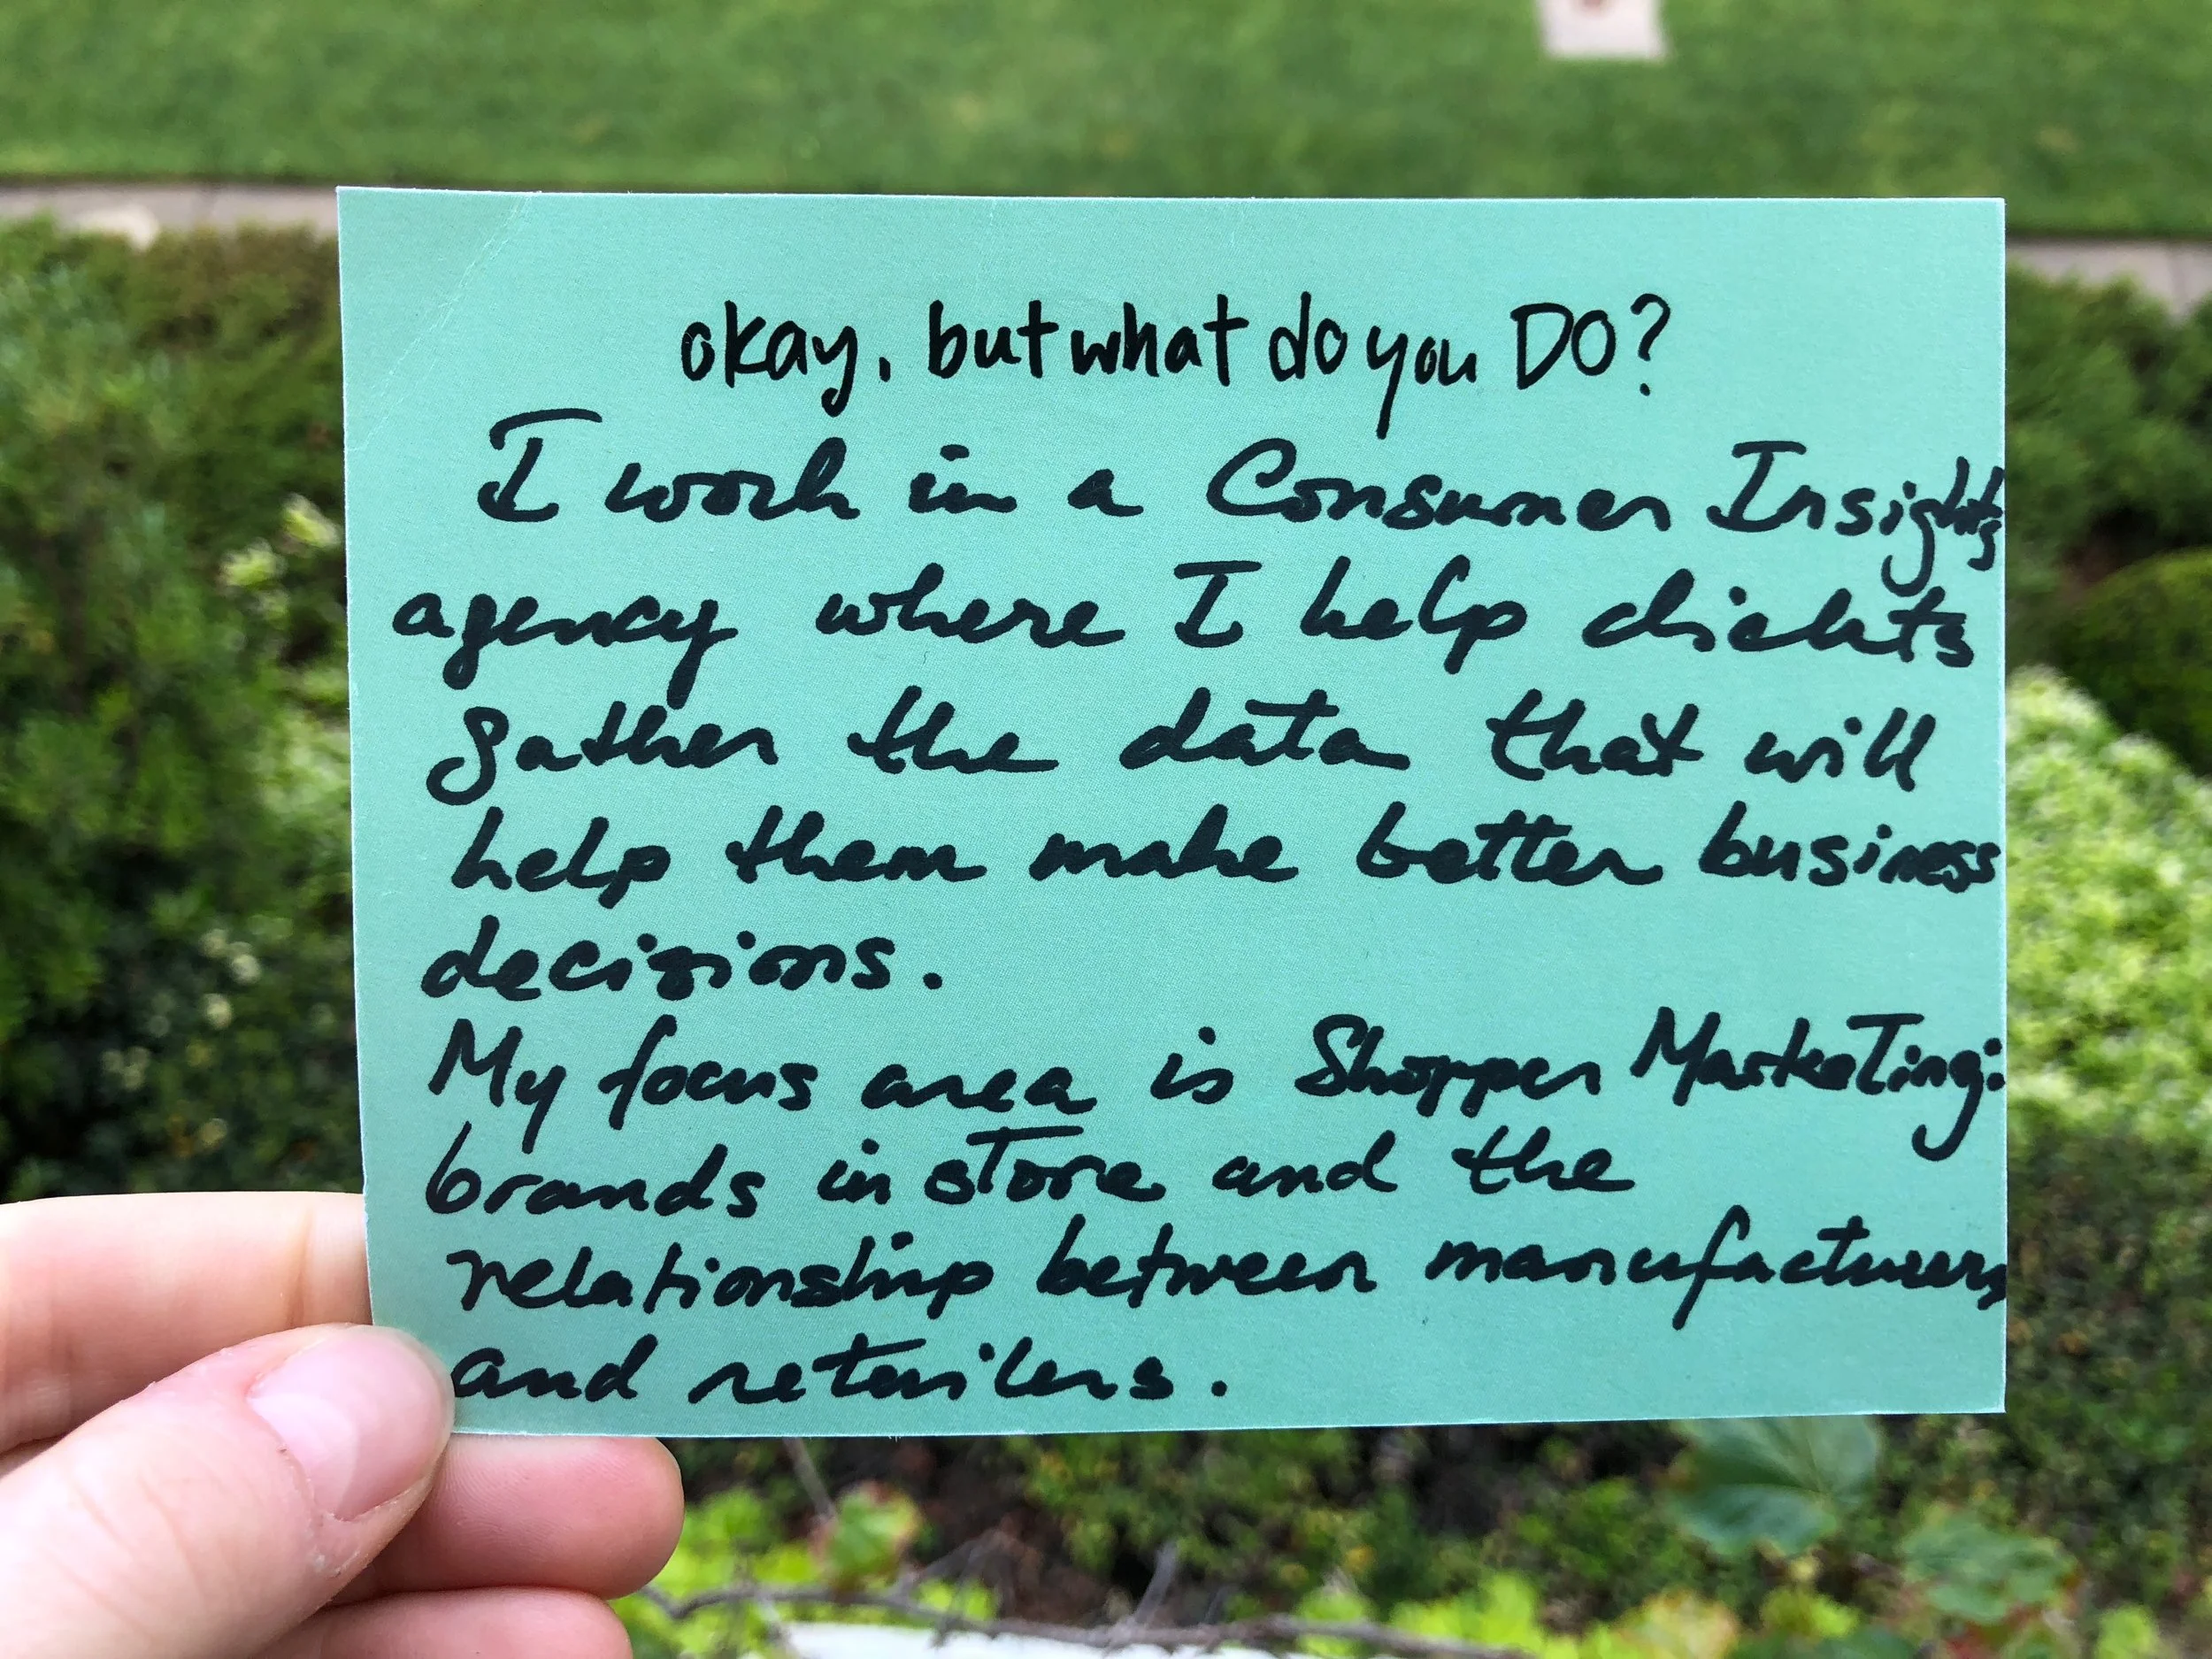 okay, but what do you DO?
I work in a Consumer Insights
agency where I help clients
gather the data that will
help them make better business
decisions.
My focus area is Shopper Marketing:
brands in store and the
relationship between manufacturers
and retailers.